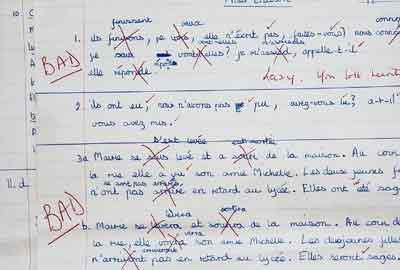 finissent veux
1. ils finirons, je vais, elle n'écrit pas, faites-vous? nous conn
je suis vont-elles? je m'assied, appelle-t-il
elle réponde
BAD
Lazy.
2. ils ont eu, nous n'avons pas pu, avez-vous lu? a-t-il
vous avez mis.
s'est levée est sortie
3a Marie se suis levé et a sorti de la maison. Au cour
la rue elle a vu son amie Michelle. Les deux jeunes
ne sont pas arrivées
n'ont pas arrivé en retard au lycée. Elles ont été sag
11.d.
BAD
lèvera sortira
b. Marie se lèvera et sortira de la maison. Au cour d
la rue, elle voira son amie Michelle. Les deux jeunes filles
verra
n'arrivont pas en retard au lycée. Elles seront sages.